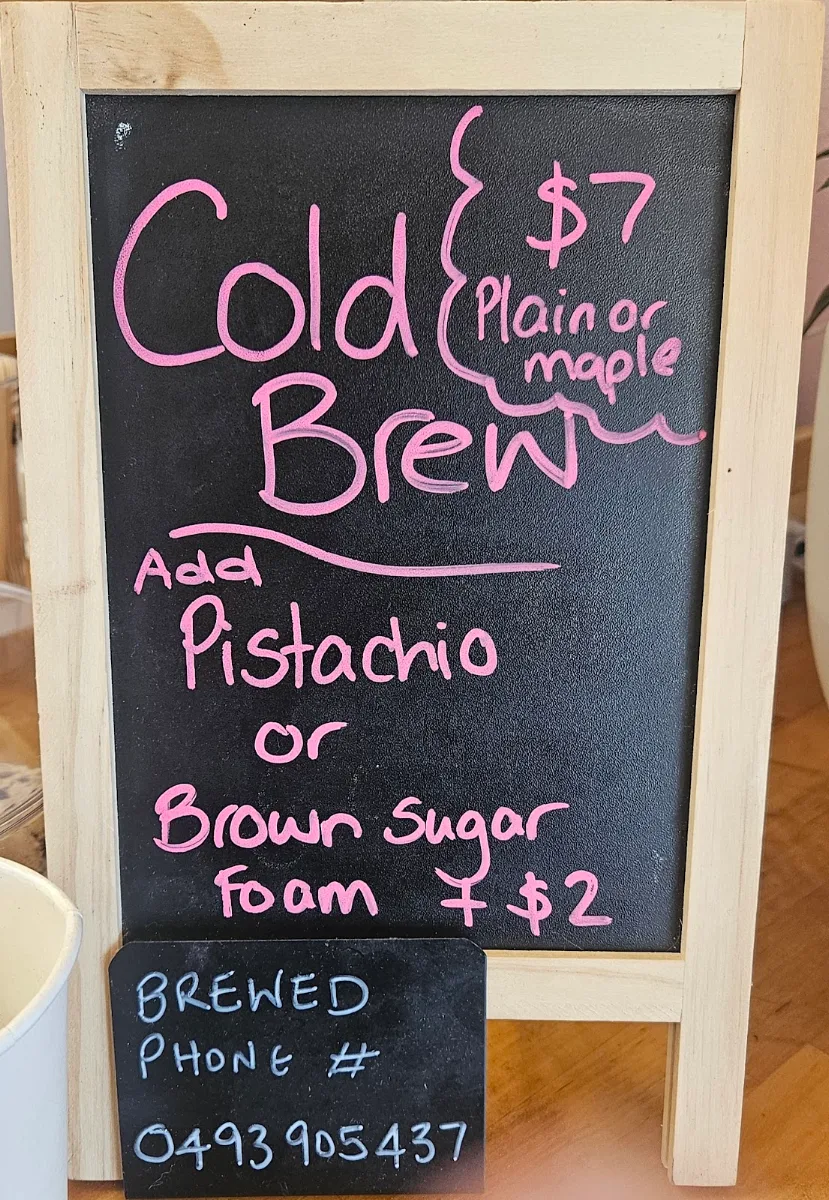 Cold
Brew
$7
Plain or
maple
Add
Pistachio
or
Brown Sugar
Foam + $2
BREWED
PHONE #
0493905437